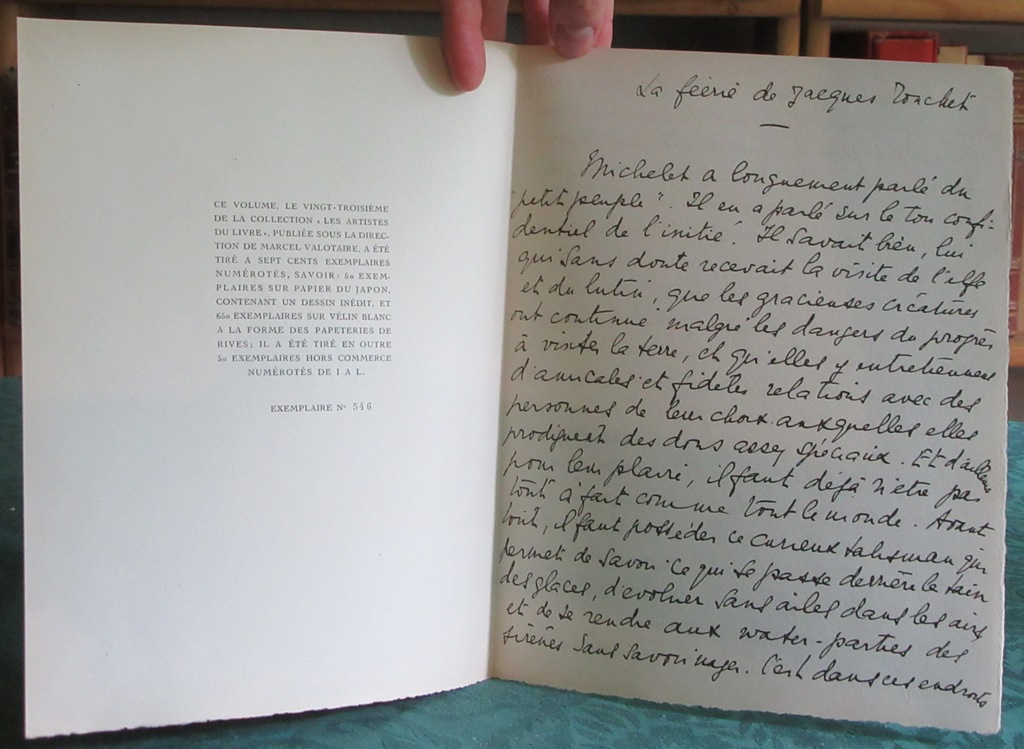 CE VOLUME, LE VINGT-TROISIÈME
DE LA COLLECTION « LES ARTISTES
DU LIVRE », PUBLIÉE SOUS LA DIREC-
TION DE MARCEL VALOTAIRE, A ÉTÉ
TIRÉ A SEPT CENTS EXEMPLAIRES
NUMÉROTÉS, SAVOIR : 50 EXEM-
PLAIRES SUR PAPIER DU JAPON,
CONTENANT UN DESSIN INÉDIT, ET
650 EXEMPLAIRES SUR VÉLIN BLANC
A LA FORME DES PAPETERIES DE
RIVES ; IL A ÉTÉ TIRÉ EN OUTRE
50 EXEMPLAIRES HORS COMMERCE
NUMÉROTÉS DE I A L.
EXEMPLAIRE Nº 546
La féerie de Jacques Touchet
Michelet a longuement parlé du
"petit peuple". Il en a parlé sur le ton confi-
dentiel de l'initié. Il savait bien, lui
qui sans doute recevait la visite de l'elfe
et du lutin, que les gracieuses créatures
ont continué malgré les dangers du progrès
à visiter la terre, et qu'elles y entretiennent
d'amicales et fidèles relations avec des
personnes de leur choix auxquelles elles
prodiguent des dons assez spéciaux. Et d'ailleurs
pour leur plaire, il faut déjà n'être pas
tout à fait comme tout le monde. Avant
tout, il faut posséder ce curieux talisman qui
permet de savoir ce qui se passe derrière le tain
des glaces, d'évoluer sans ailes dans les airs
et de se rendre aux water-parties des
sirènes sans savoir nager. C'est dans ces endroits